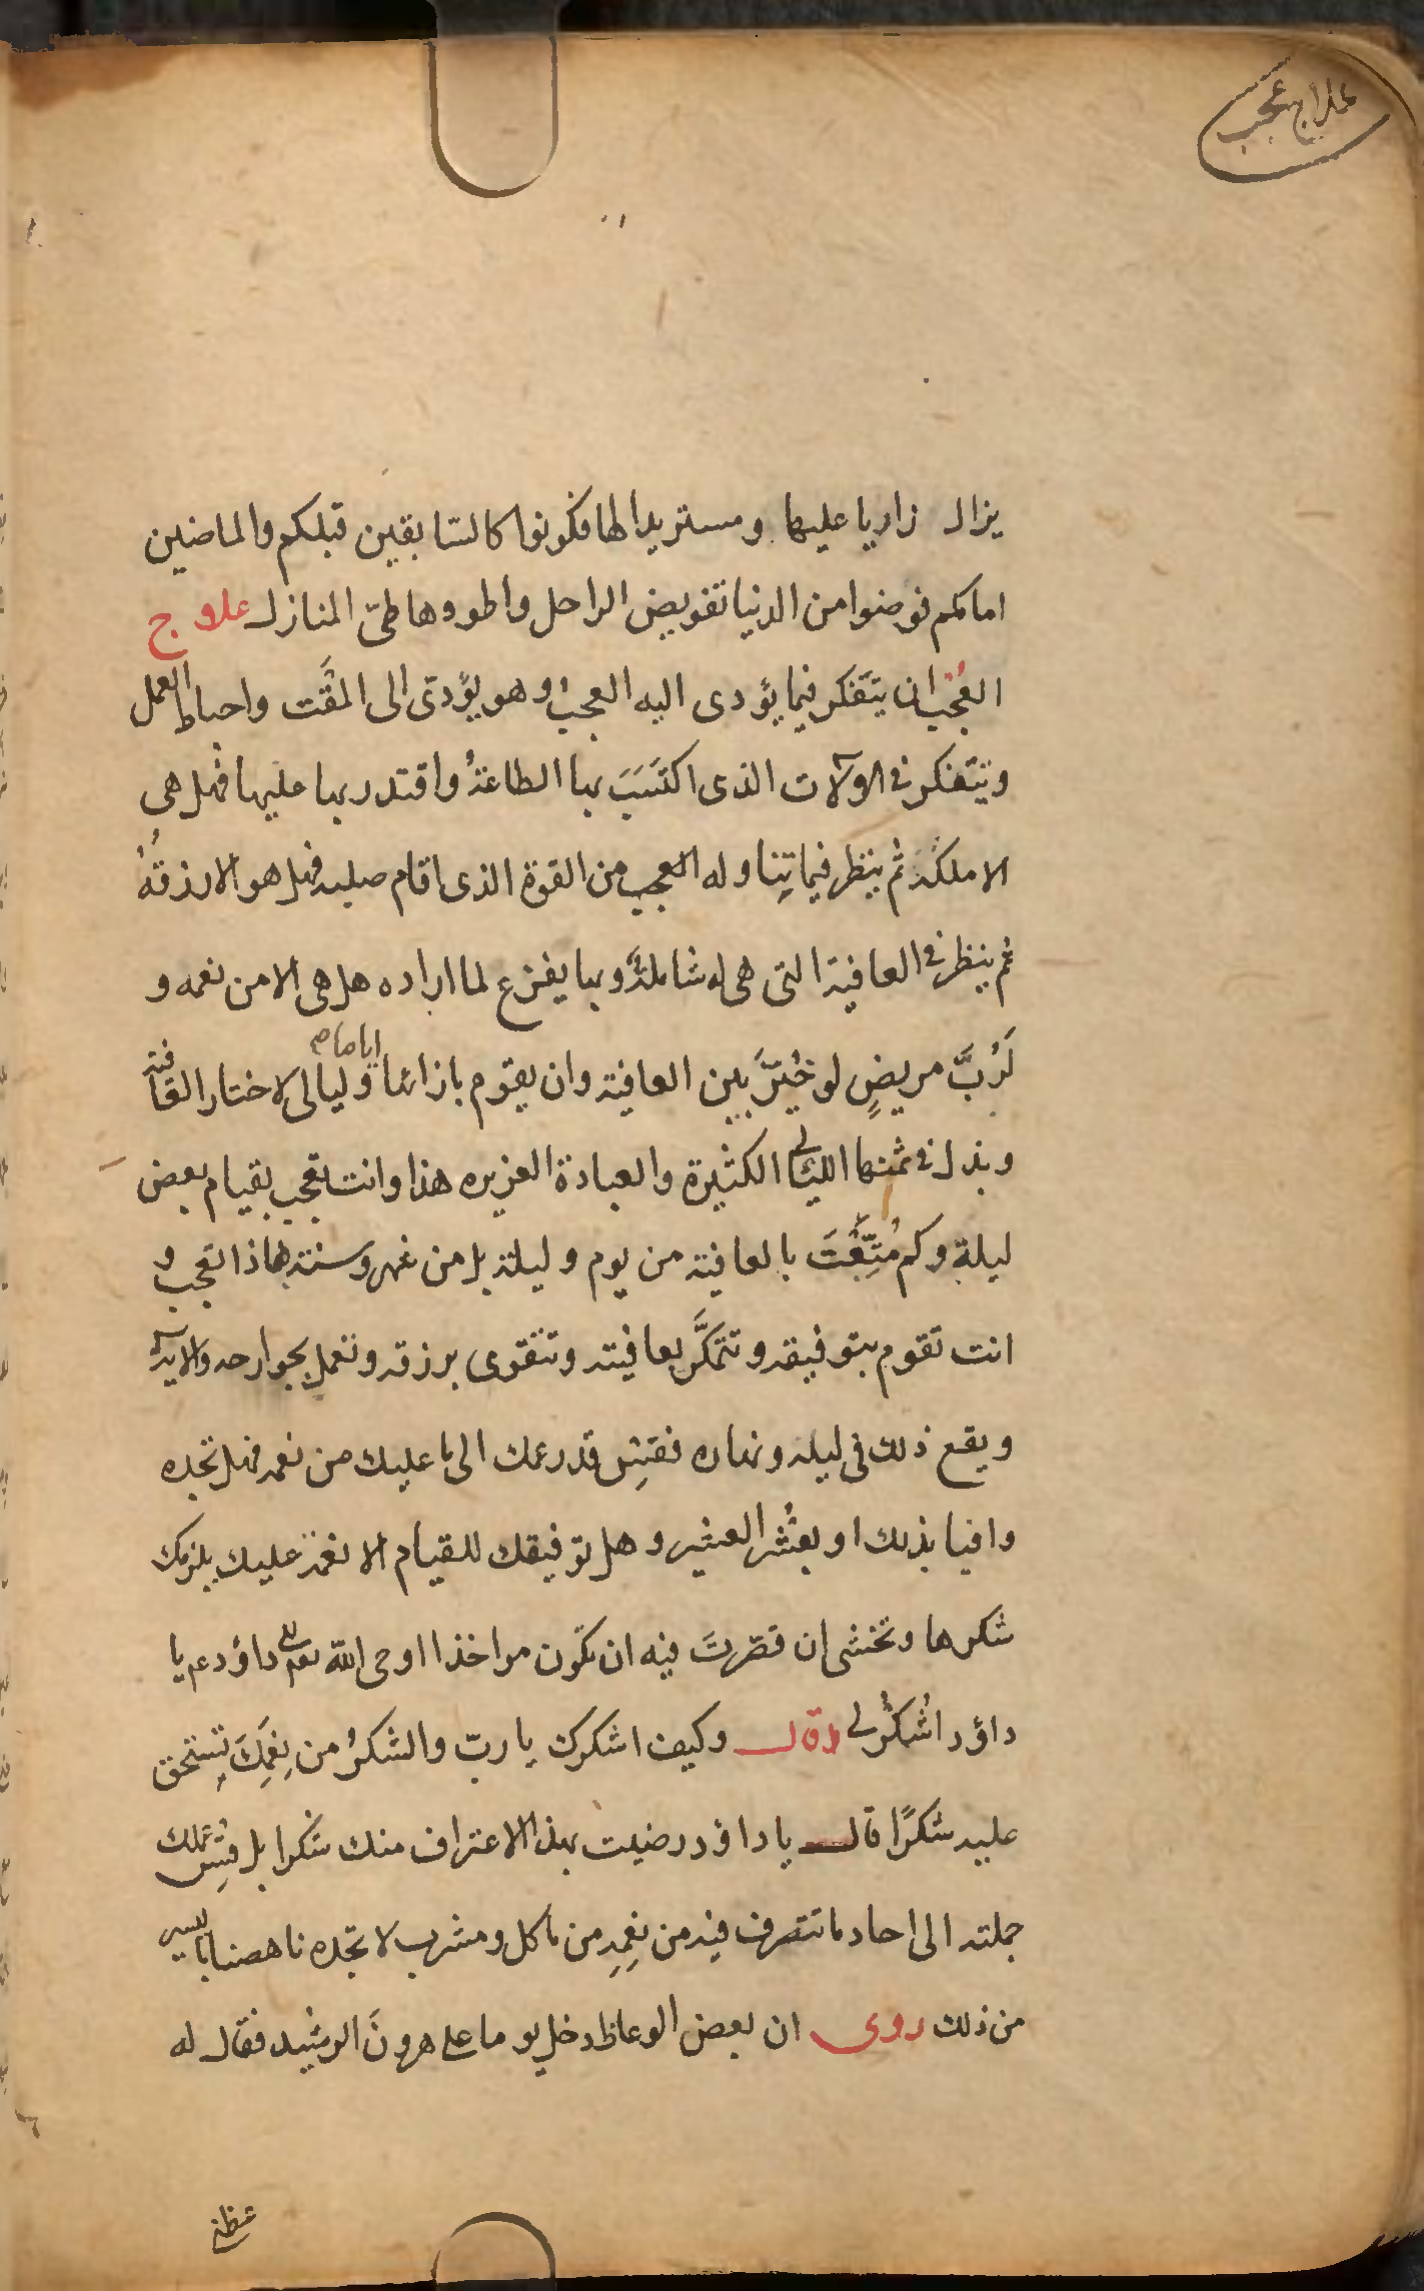 علاج عجب
يزال زاريا عليها ومستزيدا لها فكونوا كالسابقين قبلكم والماضين
امامكم فوضوا من الدنيا تقويض الراحل واطووها طىّ المنازل علاج
العُجْب ان يتفكر فيما يؤدى اليه العجبُ وهو يؤدّى الى المقْت واحباط العمل
ويتفكر فى الآلات الذى اكتَسَبَ بها الطاعةُ واقتدر بها عليها فهل هى
الا ملكُهُ ثم ينظر فيما يتناوله العجب من القوة الذى اقام صلبه فهل هو الا رزقُهُ
ثم ينظر فى العافية التى هى له شاملةٌ وبها يفزع لما اراده هل هى الا من نعمه و
لَرُبَّ مريضٍ لو خُيّرَ بين العافية وان يقوم بازائها اياما وليالى لاختار العافية
وبذل فى ثمنها الليالى الكثيرة والعبادة العزيزه هذا وانت تعجب بقيام بعض
ليلة وكم مُتِّعْتَ بالعافية من يوم وليلة بل من شهر وسنة فبماذا تعجب و
انت تقوم بتوفيقه وتتمكَّن بعافيته وتتقوى برزقه وتعمل بجوارحه وآلاته
ويقع ذلك فى ليله ونهاره فقِس قدر عملك الى ما عليك من نعمه فهل تجده
وافيا بذلك او بعُشْر العشير وهل توفيقك للقيام الا نعمة عليك يلزمك
شكرها وتخشى ان قصّرتَ فيه ان تكون مواخذا اوحى الله تعالى الى داؤد عم يا
داؤد اُشكُرْ لى قال وكيف اشكرك يا ربّ والشكرُ من نِعَمِكَ تستحق
عليه شكرًا قال يا داؤد رضيت بهذا الاعتراف منك شكرا بل قِس عملك
جملته الى احاد ما تتصرف فيه من نِعَمِهِ من ماكل ومشرب لا تجده ناهضا باليسير
من ذلك روى ان بعض الوعاظ دخل يوما على هرونَ الرشيد فقال له
عظنى